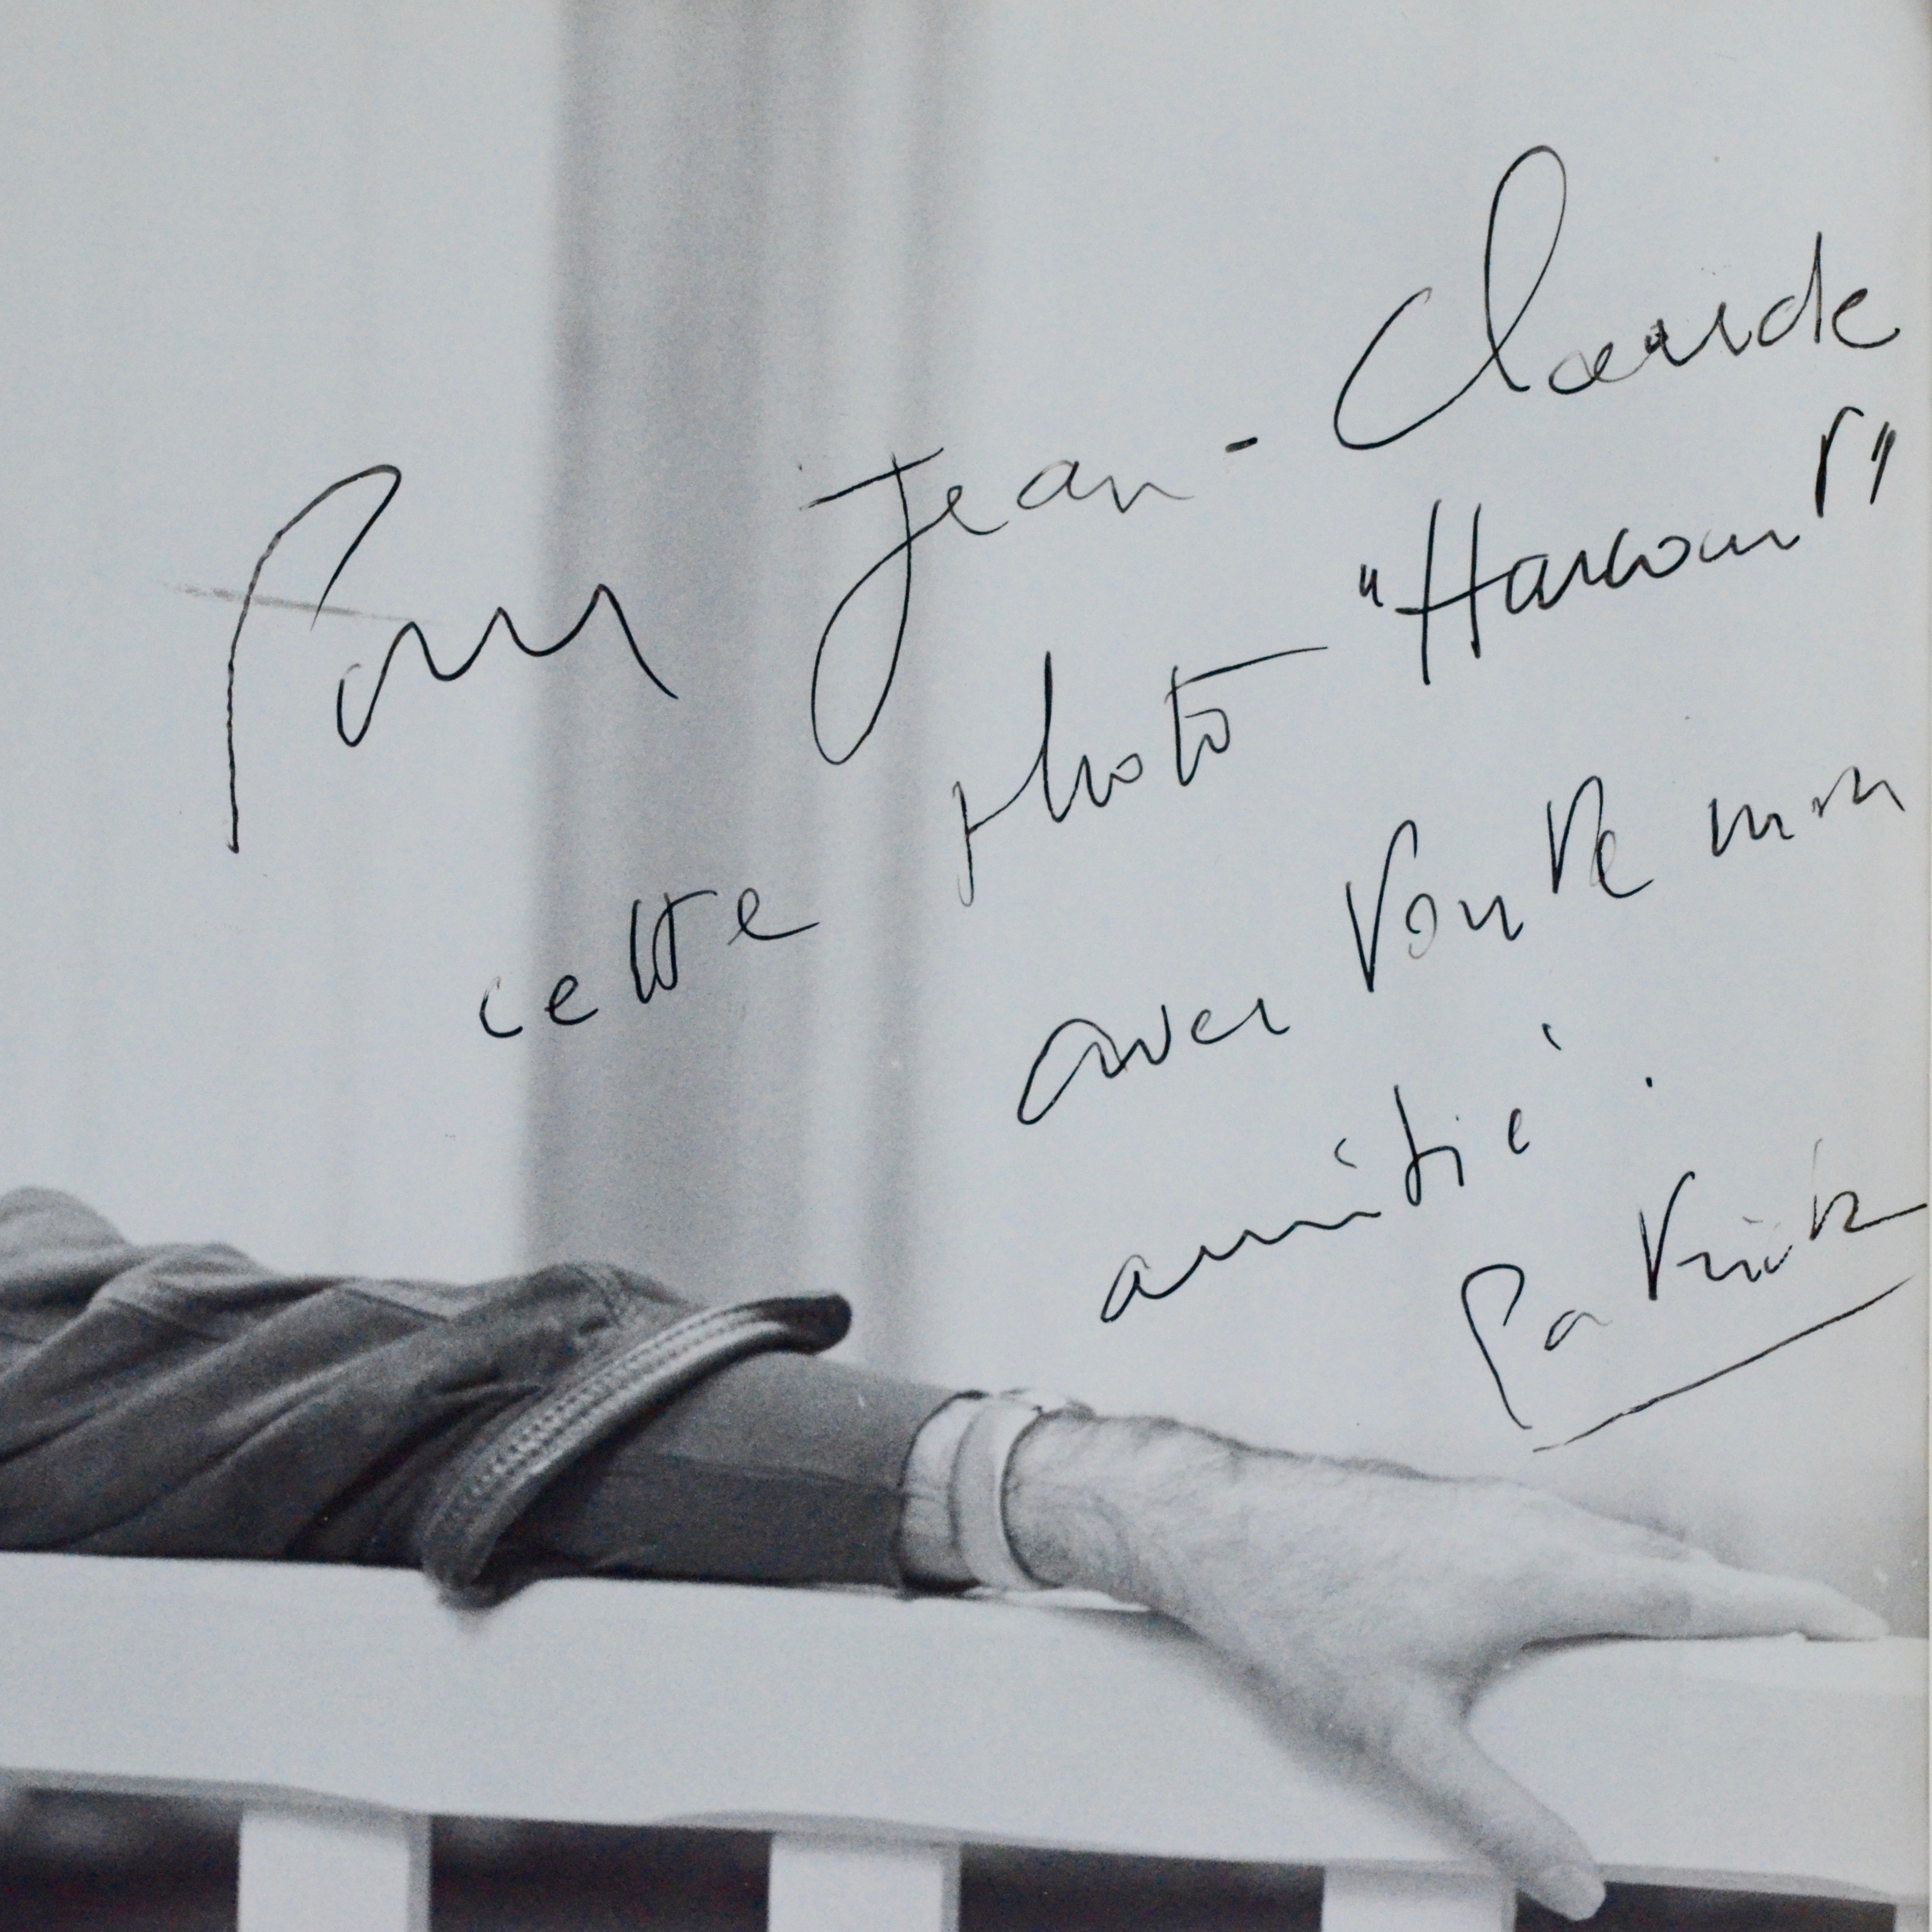 Pour Jean-Claude
cette photo "Harcourt"
avec toute mon
amitié.
Patrick